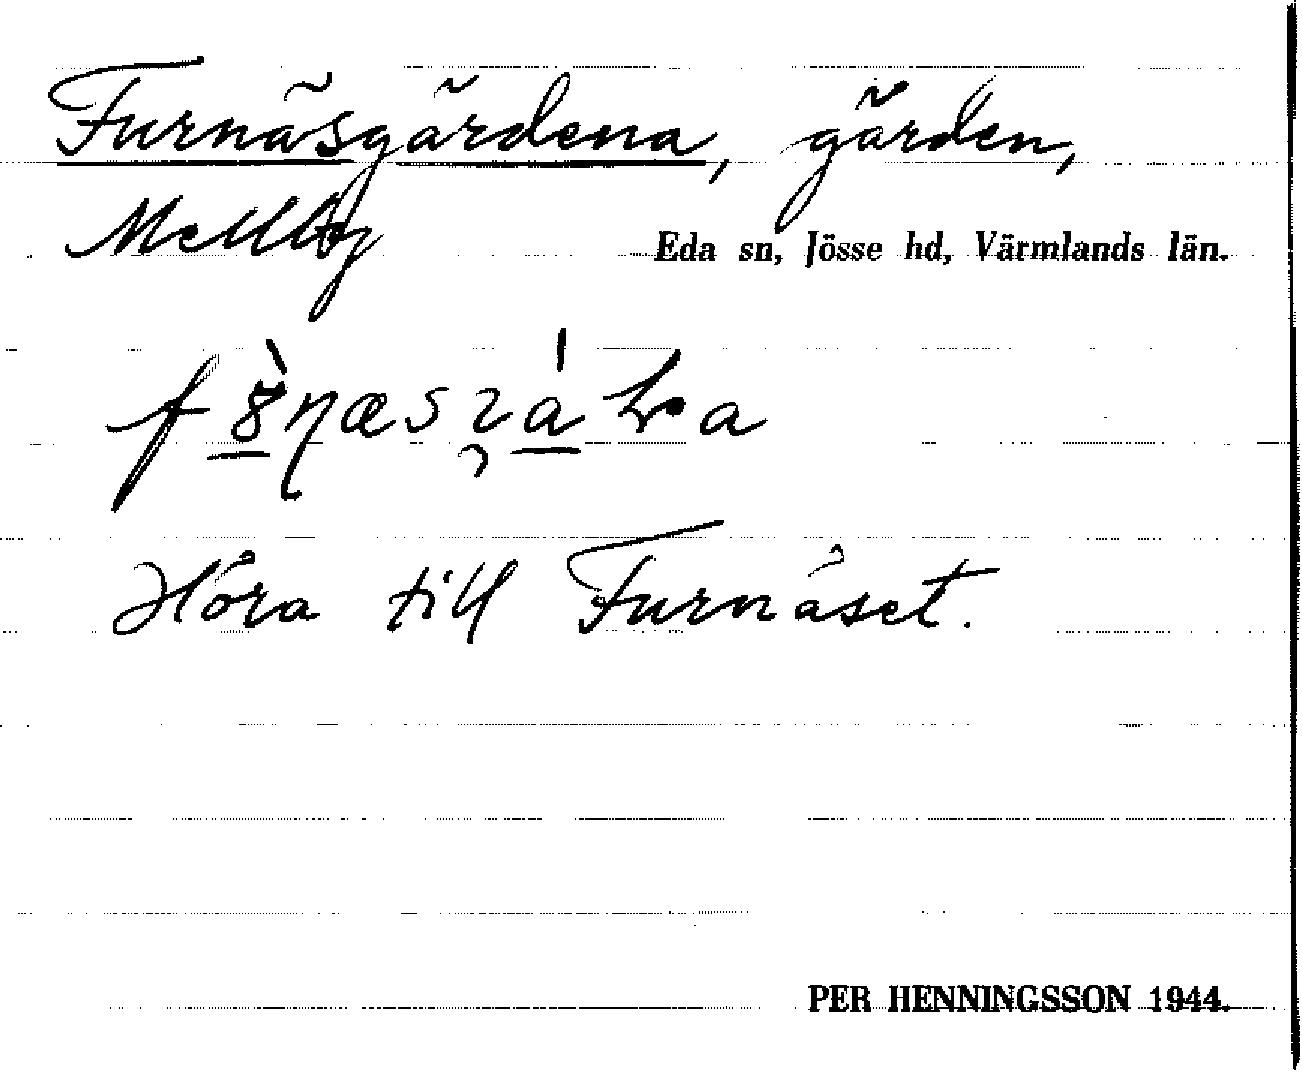 Furnäsgärdena, gärden,
Mellby
Eda sn, Jösse hd, Värmlands län.
Höra till Furnäset.
PER HENNINGSSON 1944.